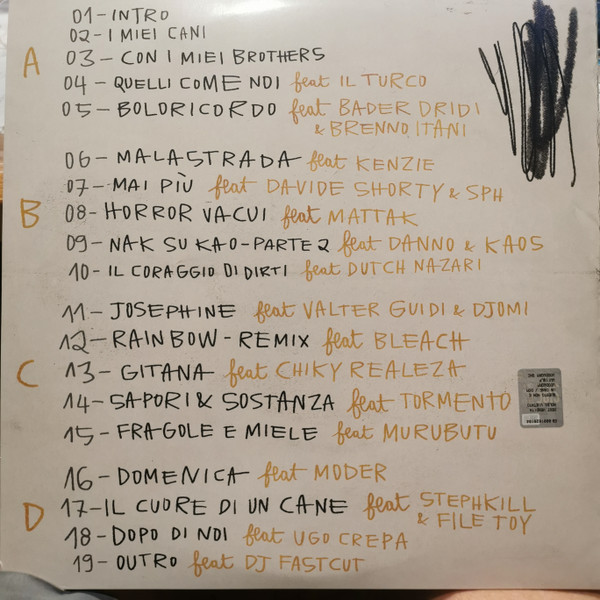 01-INTRO
02-I MIEI CANI
A
03-CON I MIEI BROTHERS
04-QUELLI COME NOI feat IL TURCO
05-BOLORICORDO feat BADER DRIDI
& BRENNO ITANI
06-MALASTRADA feat KENZIE
07-MAI PIÙ feat DAVIDE SHORTY & SPH
B
08-HORROR VACUI feat MATTAK
09-NAK SU KAO-PARTE 2 feat DANNO & KAOS
10-IL CORAGGIO DI DIRTI feat DUTCH NAZARI
11-JOSEPHINE feat VALTER GUIDI & DJOMI
12-RAINBOW-REMIX feat BLEACH
C
13-GITANA feat CHIKY REALEZA
14-SAPORI & SOSTANZA feat TORMENTO
15-FRAGOLE E MIELE feat MURUBUTU
16-DOMENICA feat MODER
D
17-IL CUORE DI UN CANE feat STEPHKILL
& FILE TOY
18-DOPO DI NOI feat UGO CREPA
19-OUTRO feat DJ FASTCUT